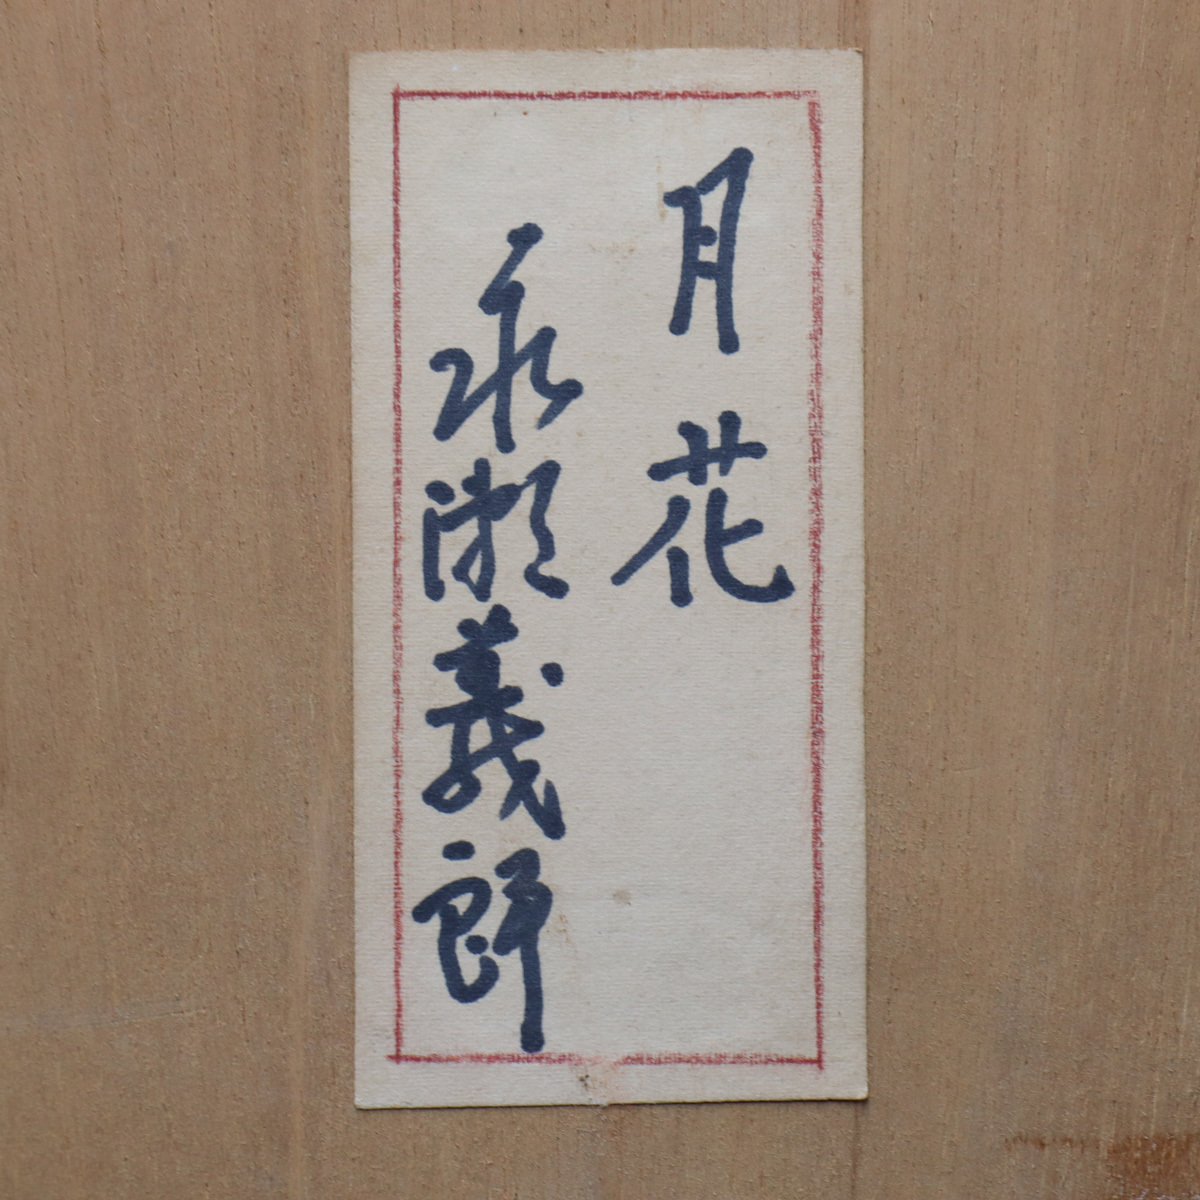 月花
永瀬義郎